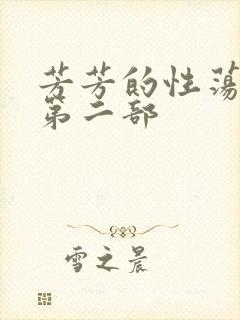 芳芳的性荡
第二部
雪之晨